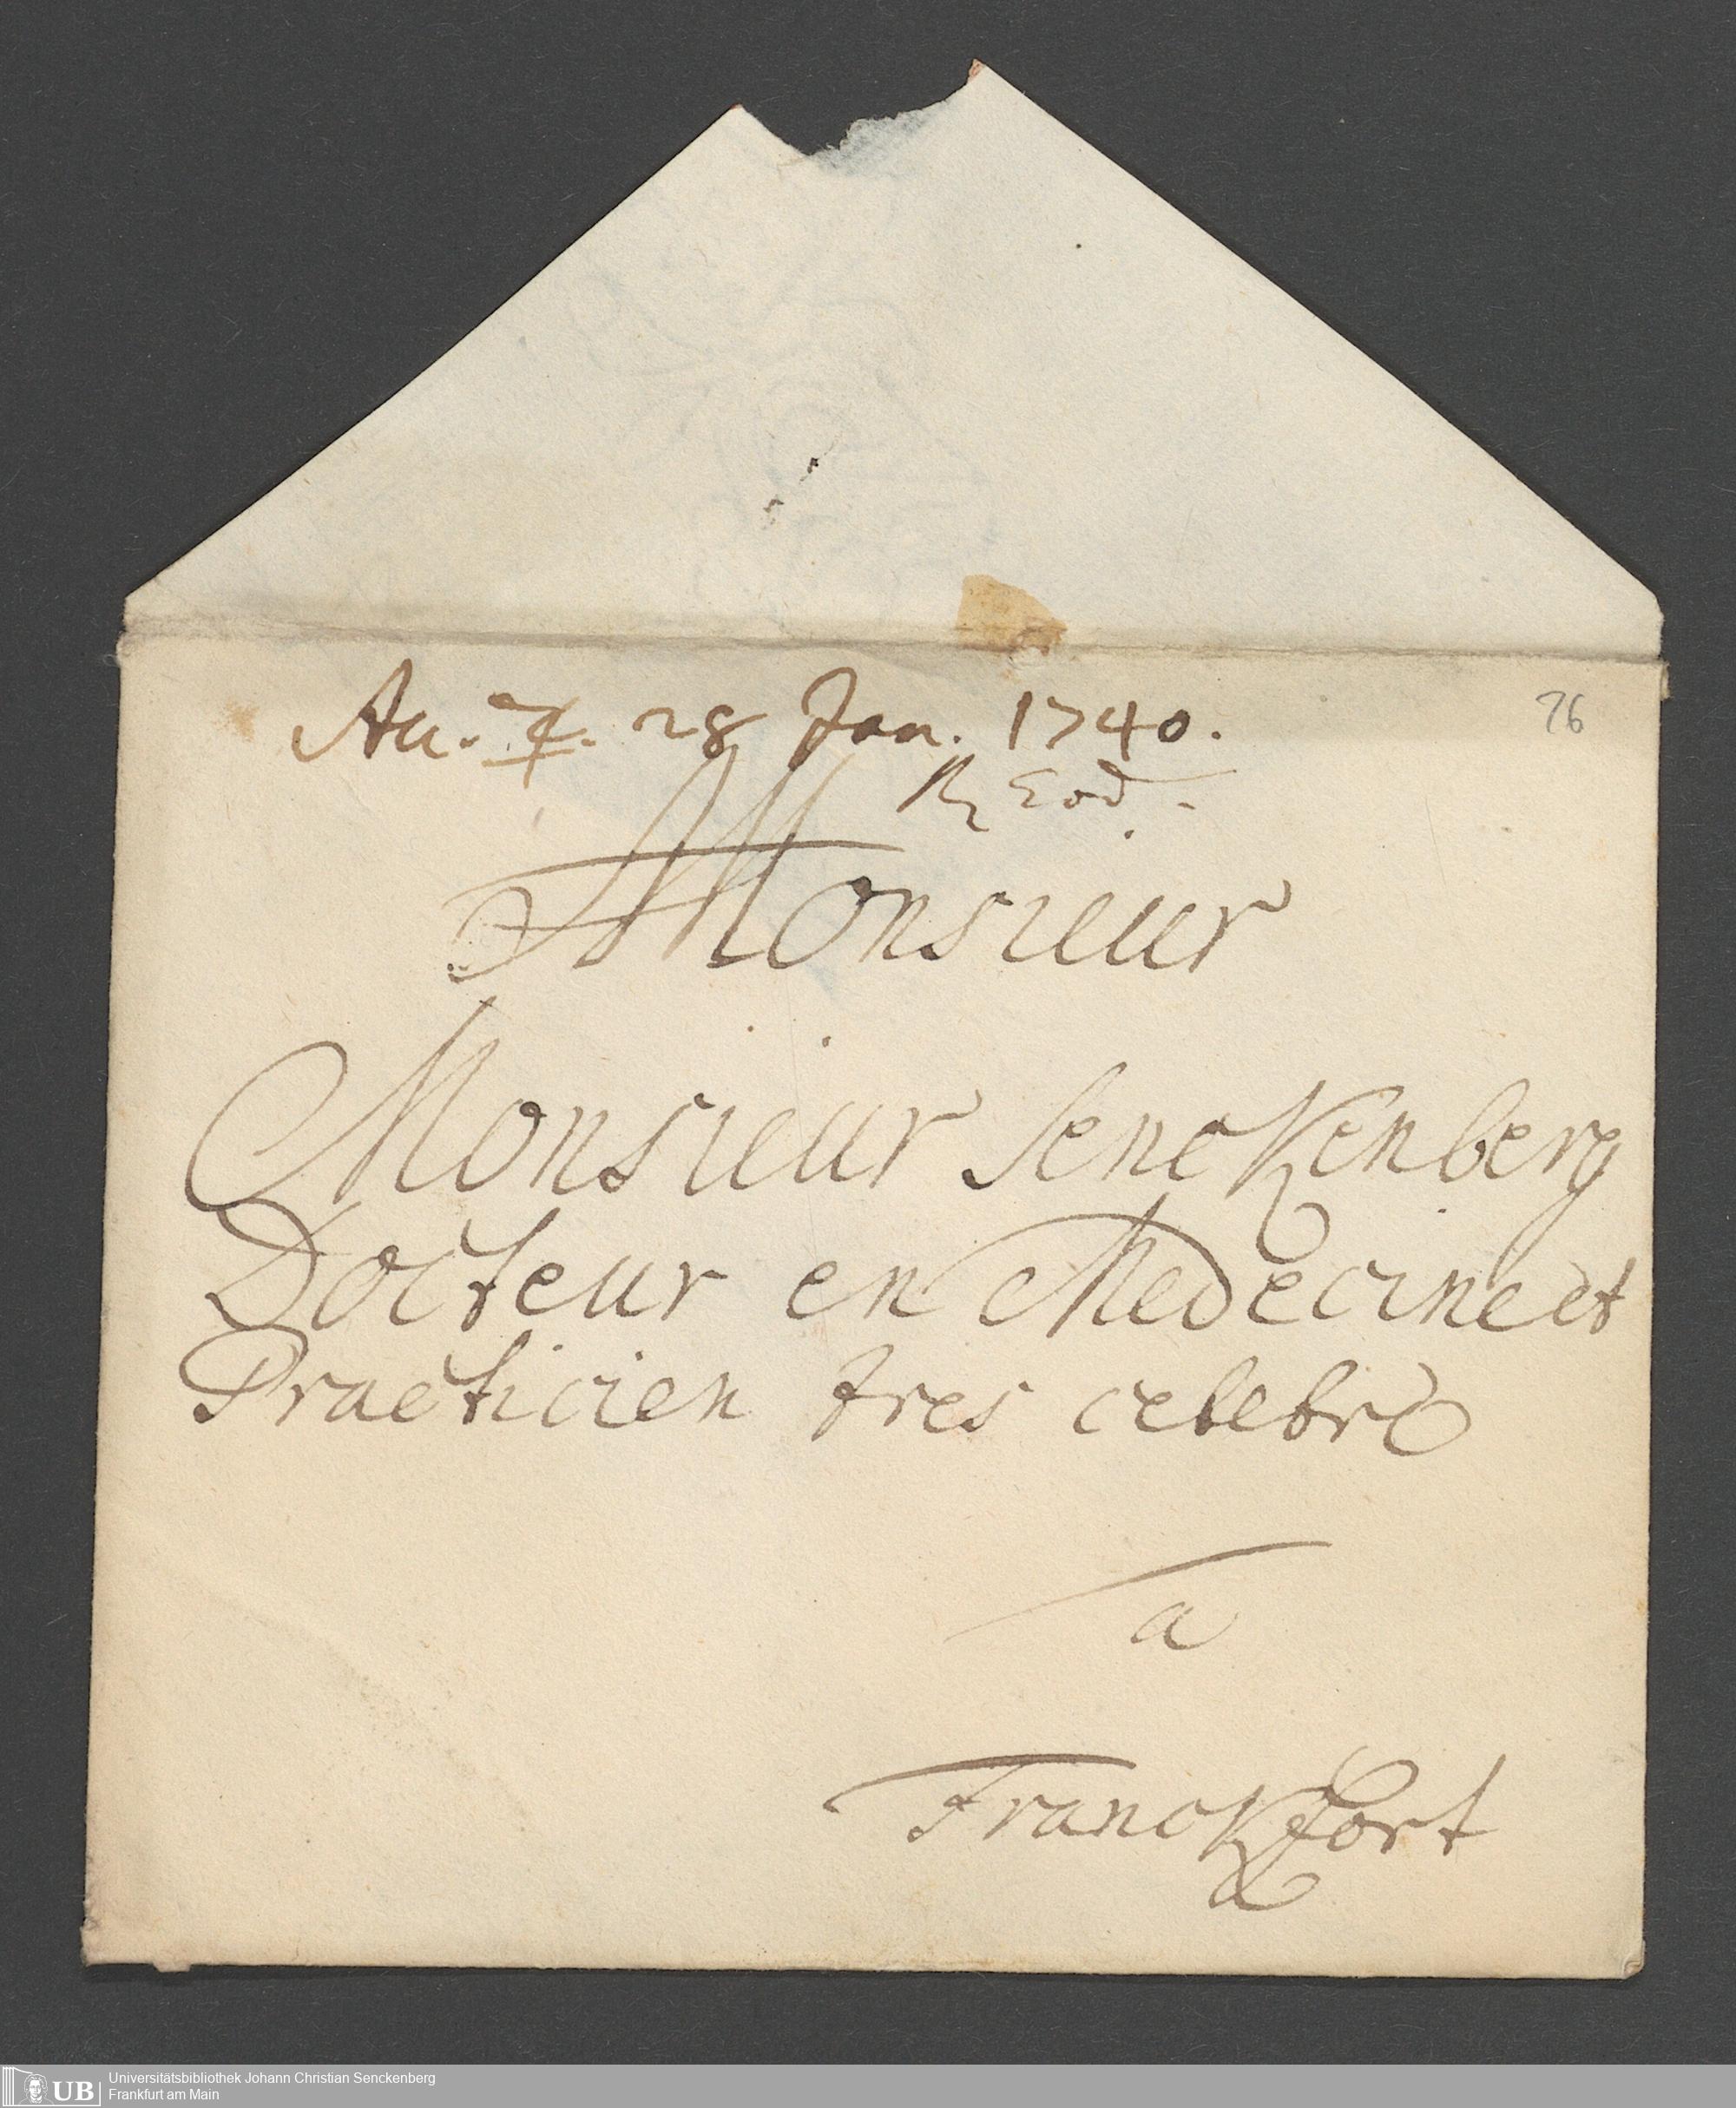 Au. ♃. 28 Jan. 1740.
76
R Eod.
Monsieur
Monsieur Senckenberg
Docteur en Medecine et
Practicien tres celebre
a
Franckfort
UB
Universitätsbibliothek Johann Christian Senckenberg
Frankfurt am Main